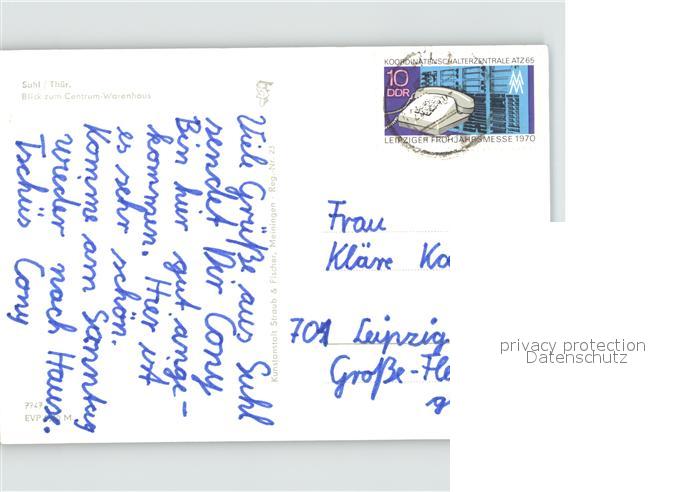 Suhl / Thür.
Blick zum Centrum-Warenhaus
Viele Grüße aus Suhl
sendet Dir Cony
Bin hier gut ange-
kommen. Hier ist
es sehr schön.
Komme am Sonntag
wieder nach Hause.
Tschüs Cony
Kunstanstalt Straub & Fischer, Meiningen · Reg.-Nr. 23
KOORDINATENSCHALTERZENTRALE ATZ 65
10
DDR
LEIPZIGER FRÜHJAHRSMESSE 1970
Frau
Kläre
701 Leipzig
Große-
EVP
privacy protection
Datenschutz